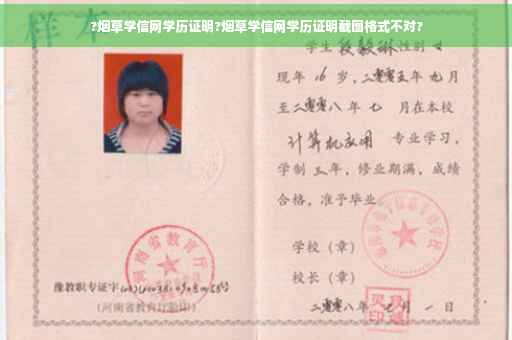 ?烟草学信网学历证明?烟草学信网学历证明截图格式不对?
样本
学生段毅琳性别女
现年16岁，二零零五年九月
至二零零八年七月在本校
计算机应用 专业学习，
学制三年，修业期满，成绩
合格，准予毕业。
学校（章）
校长（章）
二零零八年七月一日
河南省教育厅
豫教职专证字
（河南省教育厅验印）